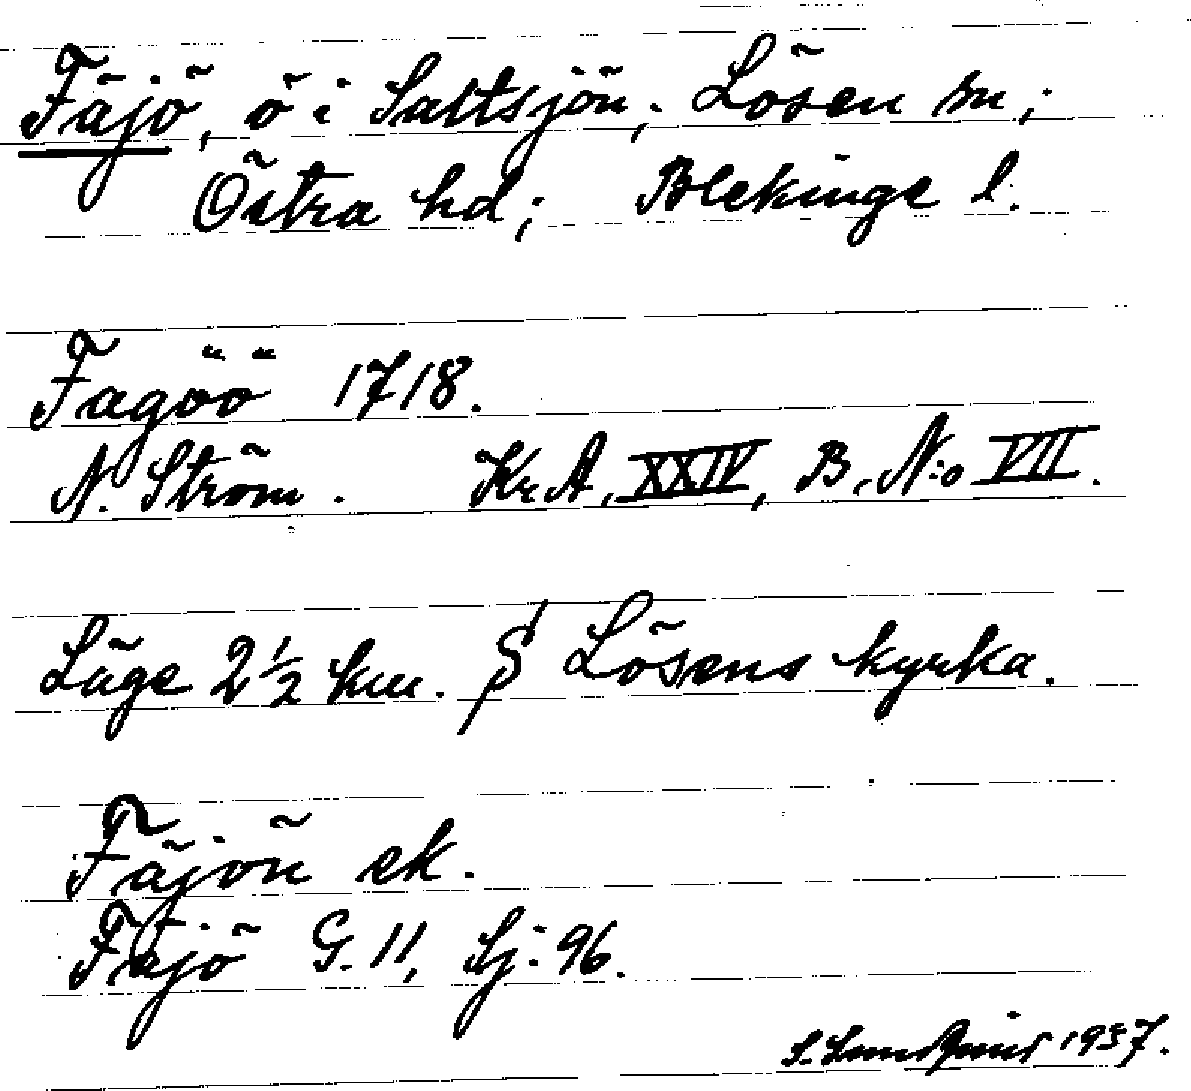 Fäjö, ö i Saltsjön; Lösen sn;
Östra hd; Blekinge l.
Fagöö 1718.
N. Ström. Kr. A, XXIV, B, N:o VII.
Läge 2½ km. S Lösens kyrka.
Fäjön ek.
Fäjö G. 11, Sj: 96.
S. Lundquist 1937.